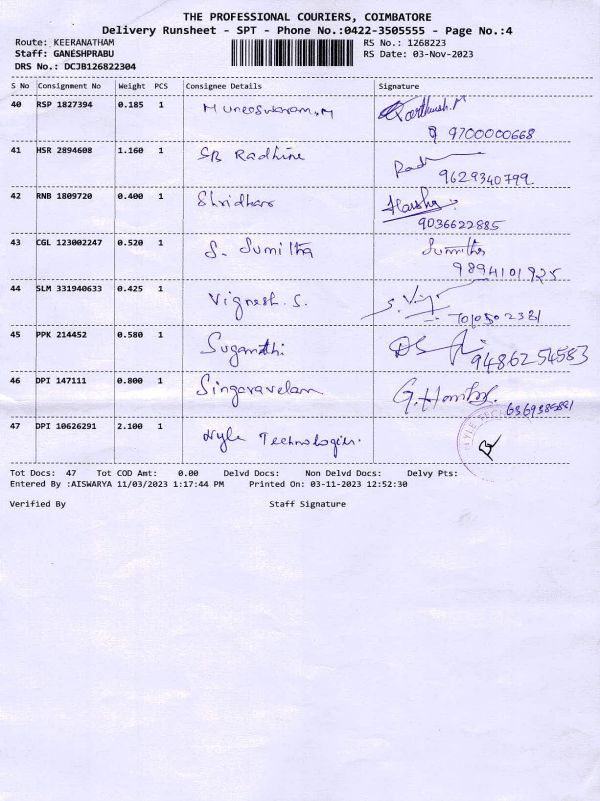 THE PROFESSIONAL COURIERS, COIMBATORE
Delivery Runsheet - SPT - Phone No.:0422-3505555 - Page No.:4
Route: KEERANATHAM RS No.: 1268223
Staff: GANESHPRABU RS Date: 03-Nov-2023
DRS No.: DCJB126822304
S No Consignment No Weight PCS Consignee Details Signature
40 RSP 1827394 0.185 1 Muneeswaran.M Karthush.M
9700000668
41 HSR 2894608 1.160 1 SB Radhine Rad
9629340799
42 RNB 1809720 0.400 1 Shridhar Harsha
9036622885
43 CGL 123002247 0.520 1 S. Sumitha Sumitha
9894101925
44 SLM 331940633 0.425 1 Vignesh. S. S. Vig
7010502381
45 PPK 214452 0.580 1 Suganthi
9486254583
46 DPI 147111 0.800 1 Singaravelan G.
47 DPI 10626291 2.100 1 Nyle Technologies.
Tot Docs: 47 Tot COD Amt: 0.00 Delvd Docs: Non Delvd Docs: Delvy Pts:
Entered By :AISWARYA 11/03/2023 1:17:44 PM Printed On: 03-11-2023 12:52:30
Verified By Staff Signature